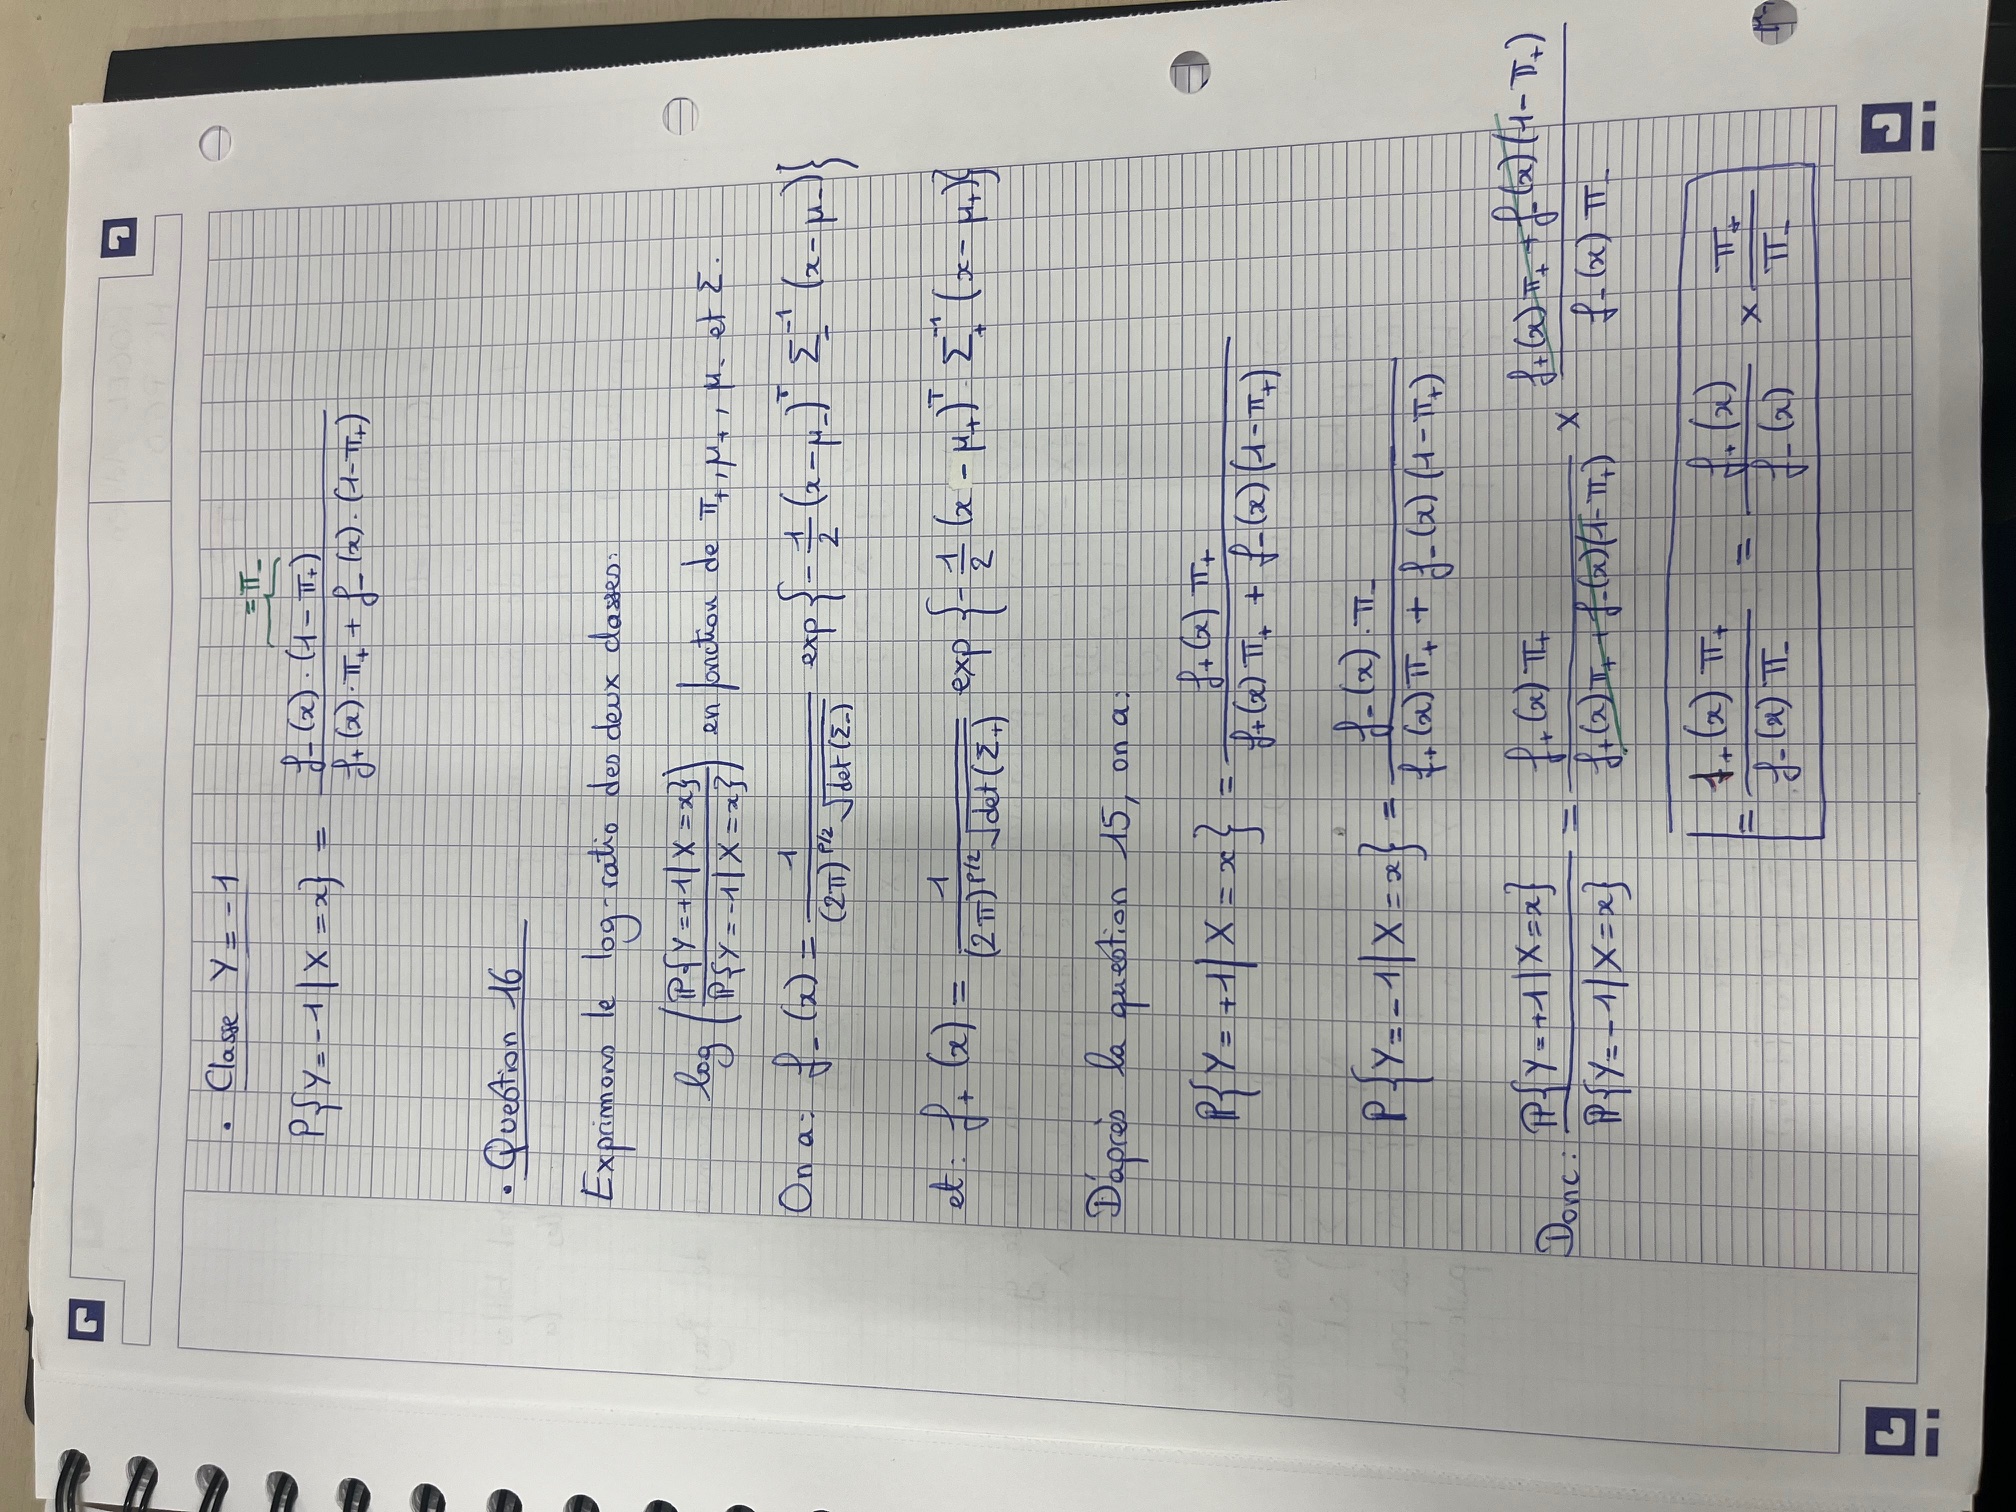 . Classe Y = -1
= π_-
P{Y = -1 | X = x} = f_-(x) · (1 - π_+) / f_+(x) · π_+ + f_-(x) · (1 - π_+)
. Question 16
Exprimons le log-ratio des deux classes:
log (P{Y = +1 | X = x} / P{Y = -1 | X = x}) en fonction de π_+, μ_+, μ_- et Σ.
On a: f_-(x) = 1 / (2π)^{p/2} √det(Σ_-) exp{-1/2 (x - μ_-)^T Σ_-^{-1} (x - μ_-)}
et: f_+(x) = 1 / (2π)^{p/2} √det(Σ_+) exp{-1/2 (x - μ_+)^T Σ_+^{-1} (x - μ_+)}
D'après la question 15, on a:
P{Y = +1 | X = x} = f_+(x) π_+ / f_+(x) π_+ + f_-(x) (1 - π_+)
P{Y = -1 | X = x} = f_-(x) · π_- / f_+(x) π_+ + f_-(x) (1 - π_+)
Donc: P{Y = +1 | X = x} / P{Y = -1 | X = x} = f_+(x) π_+ / f_+(x) π_+ + f_-(x) (1 - π_+) × f_+(x) π_+ + f_-(x) (1 - π_+) / f_-(x) π_-
= f_+(x) π_+ / f_-(x) π_- = f_+(x) / f_-(x) × π_+ / π_-